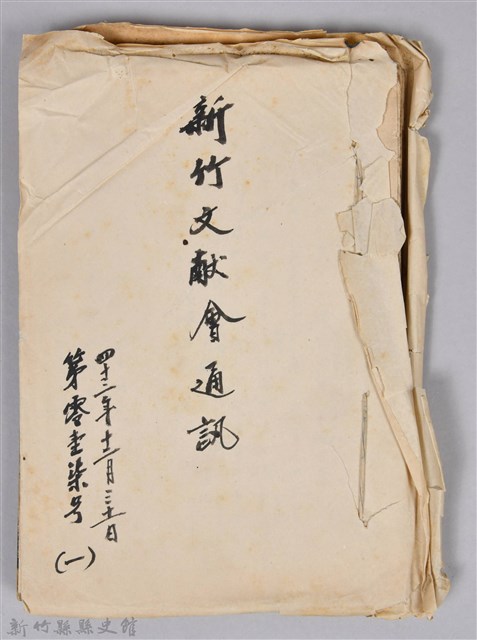 新竹文献會通訊
四十二年十二月三十一日
第零壹柒号(一)
新竹縣縣史館